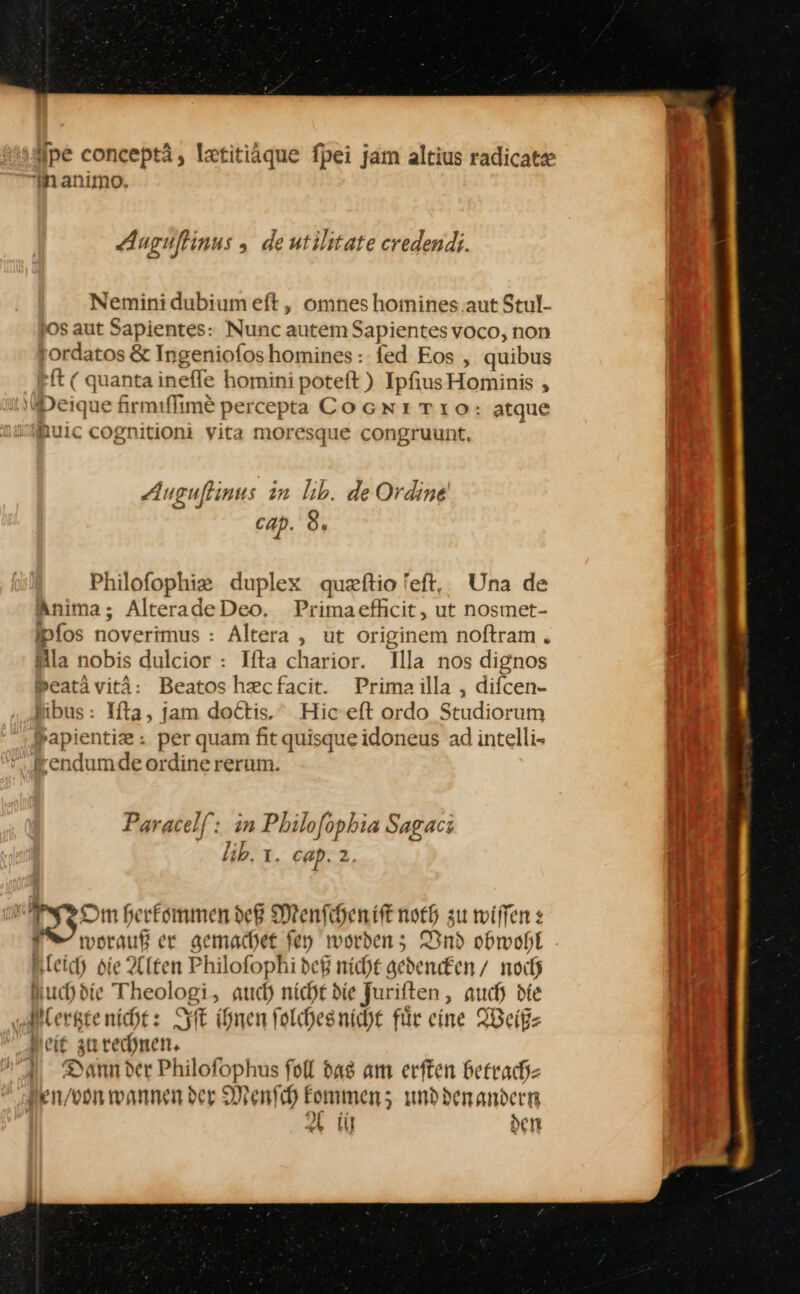 spe conceptâ, lætitiâque ſpei jam altius radicatæ
in animo.
Auguſtinus, de utilitate credendi.
Nemini dubium eſt, omnes homines aut Stul-
tos aut Sapientes: Nunc autem Sapientes voco, non
cordatos & Ingenioſos homines: ſed Eos, quibus
eſt (quanta ineſſe homini poteſt) Ipſius Hominis,
Deique firmiſſimè percepta COGNITIO: atque
huic cognitioni vita moresque congruunt.
Auguſtinus in lib. de Ordine
cap. 8.
Philoſophiæ duplex quæſtio eſt. Una de
Anima; Altera de Deo. Prima efficit, ut nosmet-
ipſos noverimus: Altera, ut originem noſtram.
Illa nobis dulcior: Iſta charior. Illa nos dignos
beatâ vitâ: Beatos hæc facit. Prima illa, diſcen-
tibus: Iſta, jam doctis. Hic eſt ordo Studiorum
Sapientiæ: per quam fit quisque idoneus ad intelli-
gendum de ordine rerum.
Paracelſ: in Philoſophia Sagaci
lib. 1. cap. 2.
VOm herkommen deß Menſchen iſt noth zu wiſſen:
worauß er gemachet ſey worden; Vnd obwohl
gleich die Alten Philoſophi deß nicht gedencken / noch
auch die Theologi, auch nicht die Juriſten, auch die
Aertzte nicht: Iſt ihnen ſolches nicht für eine Weiß-
heit zu rechnen.
Dann der Philoſophus ſoll das am erſten betrach-
ten/von wannen der Menſch kommen; und den andern
A iij den